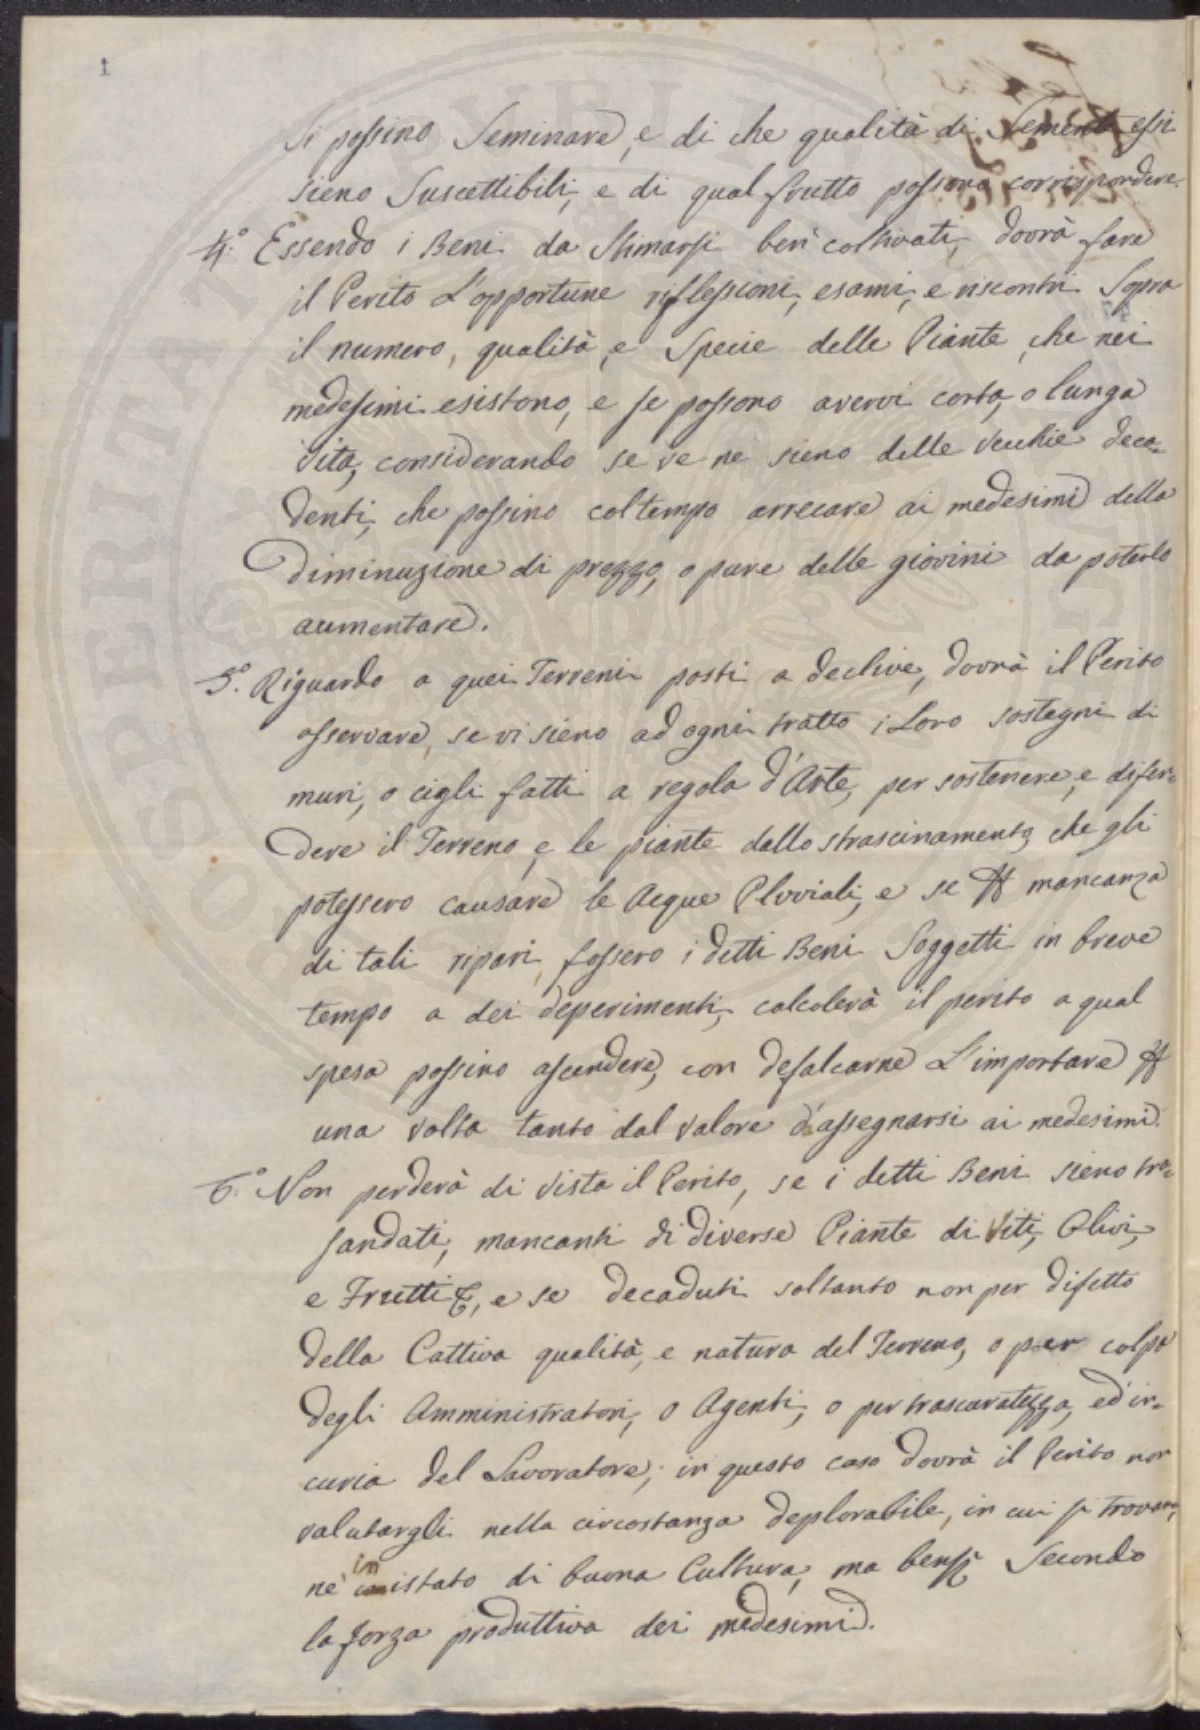 1
si possino Seminare, e di che qualità di Sementi essi
sieno Suscettibili, e di qual frutto possono corrispondere.
4.° Essendo i Beni da Stimarsi ben coltivati, dovrà fare
il Perito L'opportune riflessioni, esami, e riscontri Sopra
il numero, qualità, e Specie delle Piante, che nei
medesimi esistono, e se possono avervi corta, o lunga
vita, considerando se ve ne sieno delle vecchie deca-
denti, che possino col tempo arrecare ai medesimi della
diminuzione di prezzo, o pure delle giovini da poterlo
aumentare.
5.° Riguardo a quei Terreni posti a declive, dovrà il Perito
osservare, se vi sieno ad ogni tratto i Loro sostegni di
muri, o cigli fatti a regola d'Arte, per sostenere, e difen-
dere il Terreno, e le piante dallo strascinamento, che gli
potessero causare le Acque Pluviali, e se p mancanza
di tali ripari, fossero i detti Beni Soggetti in breve
tempo a dei deperimenti, calcolerà il perito a qual
spesa possino ascendere, con defalcarne L'importare p
una volta tanto dal valore d'assegnarsi ai medesimi.
6.° Non perderà di vista il Perito, se i detti Beni sieno tra-
sandati, mancanti di diverse Piante di Viti, Olivi,
e Frutti &, e se decaduti soltanto non per difetto
della Cattiva qualità, e natura del Terreno, o per colpa
degli Amministratori, o Agenti, o per trascuratezza, ed in-
curia del Lavoratore; in questo caso dovrà il Perito non
valutargli nella circostanza deplorabile, in cui si trovano,
nè in istato di buona Cultura, ma bensì Secondo
la forza produttiva dei medesimi.